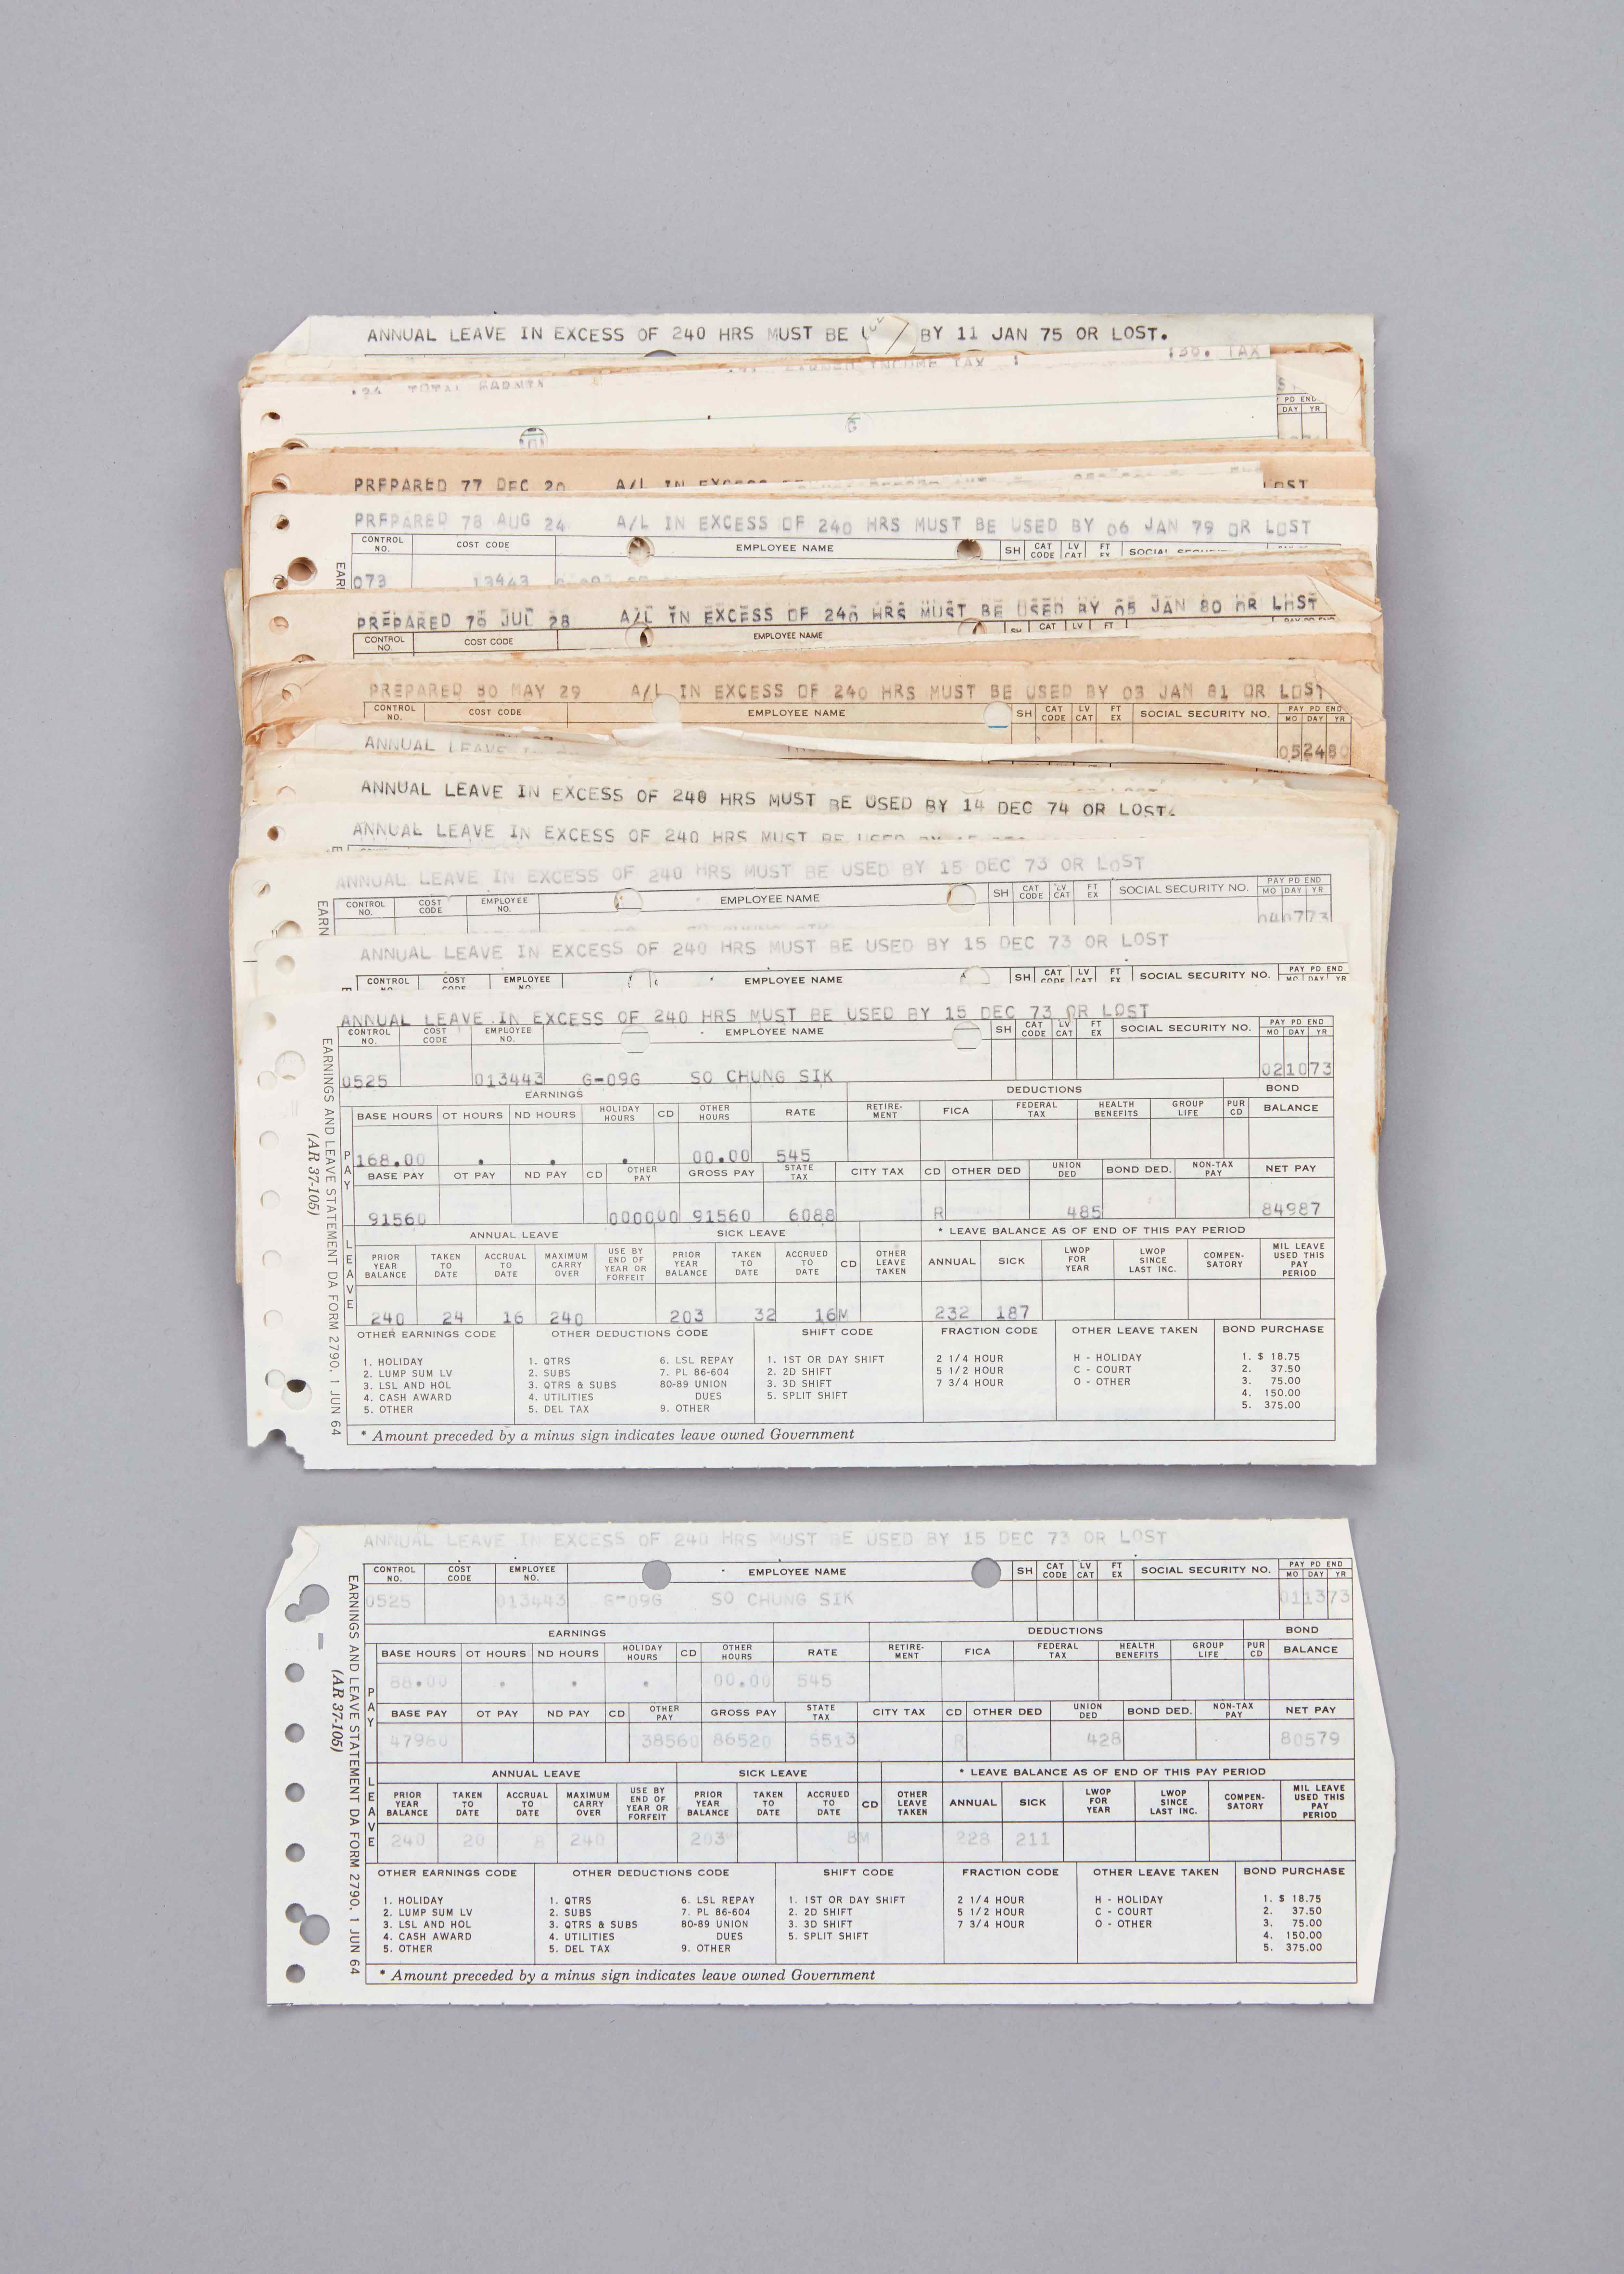 ANNUAL LEAVE IN EXCESS OF 240 HRS MUST BE BY 11 JAN 75 OR LOST.
TAX
INCOME TAX
TOTAL
PD END
DAY YR
PREPARED 77 DEC 20 A/L IN EXCESS LOST
PREPARED 78 AUG 24 A/L IN EXCESS OF 240 HRS MUST BE USED BY 06 JAN 79 OR LOST
CONTROL NO. COST CODE EMPLOYEE NAME SH CAT CODE LV CAT FT EX SOCIAL
EAR
073 13443
PREPARED JUL 28 A/L IN EXCESS OF 240 HRS MUST BE USED BY 05 JAN 80 OR LOST
CONTROL NO. COST CODE EMPLOYEE NAME SH CAT LV FT
PREPARED 80 MAY 29 A/L IN EXCESS OF 240 HRS MUST BE USED BY 03 JAN 81 OR LOST
CONTROL NO. COST CODE EMPLOYEE NAME SH CAT CODE LV CAT FT EX SOCIAL SECURITY NO. PAY PD END MO DAY YR
052480
ANNUAL LEAVE
ANNUAL LEAVE IN EXCESS OF 240 HRS MUST BE USED BY 14 DEC 74 OR LOST.
ANNUAL LEAVE IN EXCESS OF 240 HRS MUST BE USED BY
ANNUAL LEAVE IN EXCESS OF 240 HRS MUST BE USED BY 15 DEC 73 OR LOST
EARN
CONTROL NO. COST CODE EMPLOYEE NO. EMPLOYEE NAME SH CAT CODE LV CAT FT EX SOCIAL SECURITY NO. PAY PD END MO DAY YR
040773
ANNUAL LEAVE IN EXCESS OF 240 HRS MUST BE USED BY 15 DEC 73 OR LOST
CONTROL NO. COST CODE EMPLOYEE NO. EMPLOYEE NAME SH CAT CODE LV CAT FT EX SOCIAL SECURITY NO. PAY PD END MO DAY YR
ANNUAL LEAVE IN EXCESS OF 240 HRS MUST BE USED BY 15 DEC 73 OR LOST
EARNINGS AND LEAVE STATEMENT DA FORM 2790, 1 JUN 64
(AR 37-105)
CONTROL NO. COST CODE EMPLOYEE NO. EMPLOYEE NAME SH CAT CODE LV CAT FT EX SOCIAL SECURITY NO. PAY PD END MO DAY YR
0525 013443 G-09G SO CHUNG SIK 021073
EARNINGS DEDUCTIONS BOND
PAY
BASE HOURS OT HOURS ND HOURS HOLIDAY HOURS CD OTHER HOURS RATE RETIRE-MENT FICA FEDERAL TAX HEALTH BENEFITS GROUP LIFE PUR CD BALANCE
168.00 . . . 00.00 545
BASE PAY OT PAY ND PAY CD OTHER PAY GROSS PAY STATE TAX CITY TAX CD OTHER DED UNION DED BOND DED. NON-TAX PAY NET PAY
91560 000000 91560 6088 R 485 84987
LEAVE
ANNUAL LEAVE SICK LEAVE * LEAVE BALANCE AS OF END OF THIS PAY PERIOD
PRIOR YEAR BALANCE TAKEN TO DATE ACCRUAL TO DATE MAXIMUM CARRY OVER USE BY END OF YEAR OR FORFEIT PRIOR YEAR BALANCE TAKEN TO DATE ACCRUED TO DATE CD OTHER LEAVE TAKEN ANNUAL SICK LWOP FOR YEAR LWOP SINCE LAST INC. COMPEN-SATORY MIL LEAVE USED THIS PAY PERIOD
240 24 16 240 203 32 16M 232 187
OTHER EARNINGS CODE OTHER DEDUCTIONS CODE SHIFT CODE FRACTION CODE OTHER LEAVE TAKEN BOND PURCHASE
1. HOLIDAY 1. QTRS 6. LSL REPAY 1. 1ST OR DAY SHIFT 2 1/4 HOUR H - HOLIDAY 1. $ 18.75
2. LUMP SUM LV 2. SUBS 7. PL 86-604 2. 2D SHIFT 5 1/2 HOUR C - COURT 2. 37.50
3. LSL AND HOL 3. QTRS & SUBS 80-89 UNION 3. 3D SHIFT 7 3/4 HOUR O - OTHER 3. 75.00
4. CASH AWARD 4. UTILITIES DUES 5. SPLIT SHIFT 4. 150.00
5. OTHER 5. DEL TAX 9. OTHER 5. 375.00
* Amount preceded by a minus sign indicates leave owned Government
ANNUAL LEAVE IN EXCESS OF 240 HRS MUST BE USED BY 15 DEC 73 OR LOST
EARNINGS AND LEAVE STATEMENT DA FORM 2790, 1 JUN 64
(AR 37-105)
CONTROL NO. COST CODE EMPLOYEE NO. EMPLOYEE NAME SH CAT CODE LV CAT FT EX SOCIAL SECURITY NO. PAY PD END MO DAY YR
0525 013443 G-09G SO CHUNG SIK 011373
EARNINGS DEDUCTIONS BOND
PAY
BASE HOURS OT HOURS ND HOURS HOLIDAY HOURS CD OTHER HOURS RATE RETIRE-MENT FICA FEDERAL TAX HEALTH BENEFITS GROUP LIFE PUR CD BALANCE
88.00 . . . 00.00 545
BASE PAY OT PAY ND PAY CD OTHER PAY GROSS PAY STATE TAX CITY TAX CD OTHER DED UNION DED BOND DED. NON-TAX PAY NET PAY
47960 38560 86520 5513 R 428 80579
LEAVE
ANNUAL LEAVE SICK LEAVE * LEAVE BALANCE AS OF END OF THIS PAY PERIOD
PRIOR YEAR BALANCE TAKEN TO DATE ACCRUAL TO DATE MAXIMUM CARRY OVER USE BY END OF YEAR OR FORFEIT PRIOR YEAR BALANCE TAKEN TO DATE ACCRUED TO DATE CD OTHER LEAVE TAKEN ANNUAL SICK LWOP FOR YEAR LWOP SINCE LAST INC. COMPEN-SATORY MIL LEAVE USED THIS PAY PERIOD
240 20 8 240 203 8M 228 211
OTHER EARNINGS CODE OTHER DEDUCTIONS CODE SHIFT CODE FRACTION CODE OTHER LEAVE TAKEN BOND PURCHASE
1. HOLIDAY 1. QTRS 6. LSL REPAY 1. 1ST OR DAY SHIFT 2 1/4 HOUR H - HOLIDAY 1. $ 18.75
2. LUMP SUM LV 2. SUBS 7. PL 86-604 2. 2D SHIFT 5 1/2 HOUR C - COURT 2. 37.50
3. LSL AND HOL 3. QTRS & SUBS 80-89 UNION 3. 3D SHIFT 7 3/4 HOUR O - OTHER 3. 75.00
4. CASH AWARD 4. UTILITIES DUES 5. SPLIT SHIFT 4. 150.00
5. OTHER 5. DEL TAX 9. OTHER 5. 375.00
* Amount preceded by a minus sign indicates leave owned Government